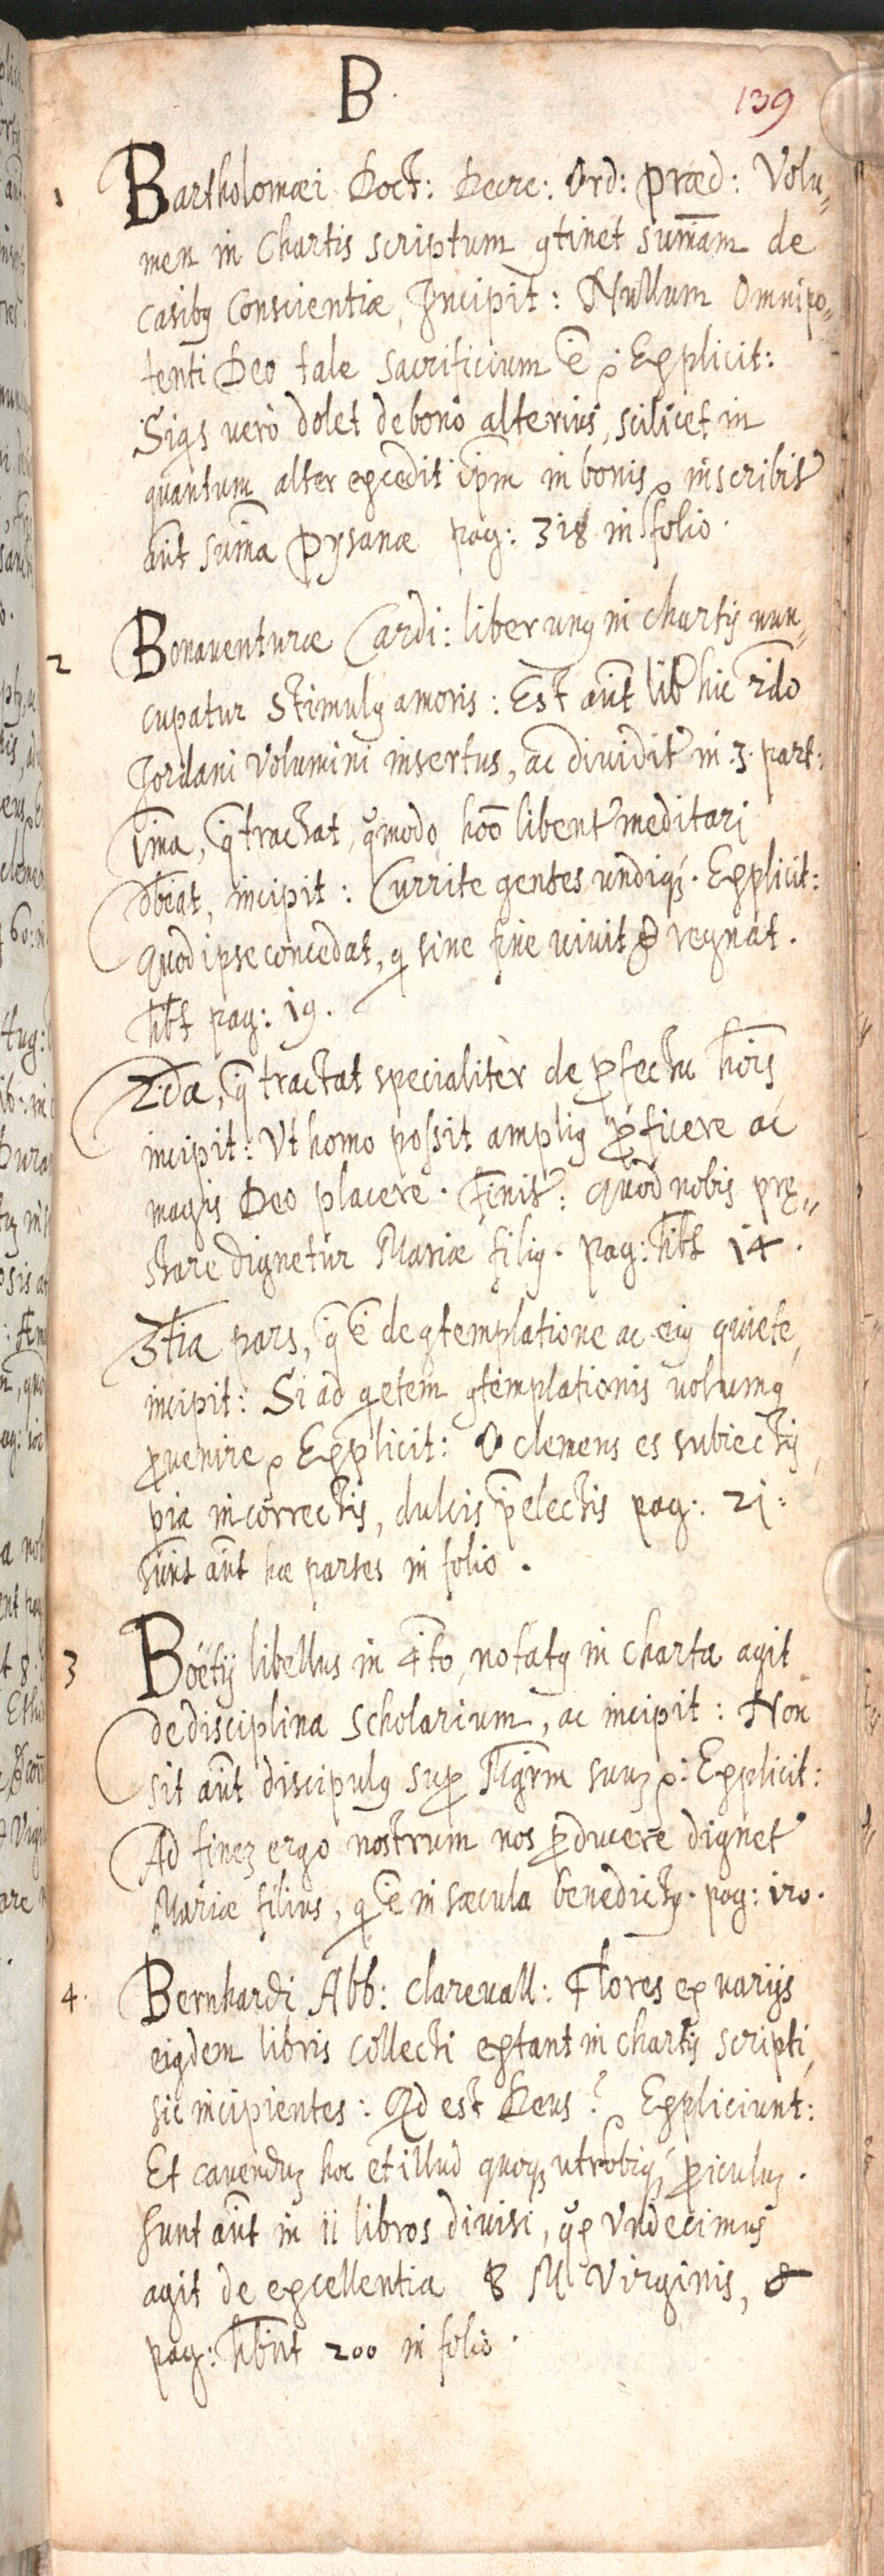 B.
139
1 Bartholomæi Doct: Decre: Ord: Præd: Volu„
men in Chartis scriptum ꝯtinet sum̄am de
casibꝫ Conscientiæ, Incipit: Nullum Omnipo„
tenti Deo tale sacrificium ē ꝛ: Explicit:
Siqs verò dolet de bono alterius, scilicet in
quantum alter excedit ip̄m in bonis ꝛ inscribit᷑
aūt sum̄a Pysanæ pag: 318 in folio.
2 Bonauenturæ Cardi: liber unꝰ in chartis nun„
cupatur Stimulꝰ amoris: Est aūt lib hic
Jordani Volumini insertus, ac diuidit᷑ in 3. part:
1ma, q̄ tractat, qͦmodo hoō libent᷑ meditari
dbeat, incipit: Currite gentes undiqꝫ. Explicit:
Quod ipse concedat, q sine fine uiuit & regnat.
hbt pag: 19.
2da, q̄ tractat specialiter de ꝓfectu hoīs
incipit: Vt homo possit ampliꝰ ꝓficere ac
magis Deo placere. Finit᷑: Quod nobis prę„
stare dignetur Mariæ filiꝰ. pag: hbt 14.
3tia pars, q̄ ē de ꝯtemplatione ac eiꝰ quiete,
incipit: Si ad qetem ꝯtemplationis uolumꝰ
ꝑuenire ꝛ Explicit: O clemens es subiectis,
pia in correctis, dulcis p̄electis pag: 21:
sunt aūt hæ partes in folio.
3 Boëtij libellus in 4to, notatꝰ in charta agit
de disciplina scholarium, ac incipit: Non
sit aūt discipulꝰ suꝑ Mgr̄m suuꝫ ꝛ: Explicit:
Ad fineꝫ ergo nostrum nos ꝓducere dignet᷑
Mariæ filius, q ē in sæcula benedictꝰ. pag: 120.
4. Bernhardi Abb: Clareuall: Flores ex uarijs
eiꝰdem libris collecti extant in chartis scripti,
sic incipientes: Qd est Deus? ꝛ Expliciunt:
Et cauenduꝫ hoc et illud quoqꝫ utrobiqꝫ ꝑiculuꝫ.
Sunt aūt in 11 libros diuisi, qꝝ Vndecimus
agit de excellentia B M Virginis, &
pag: hbūt 200 in folio.